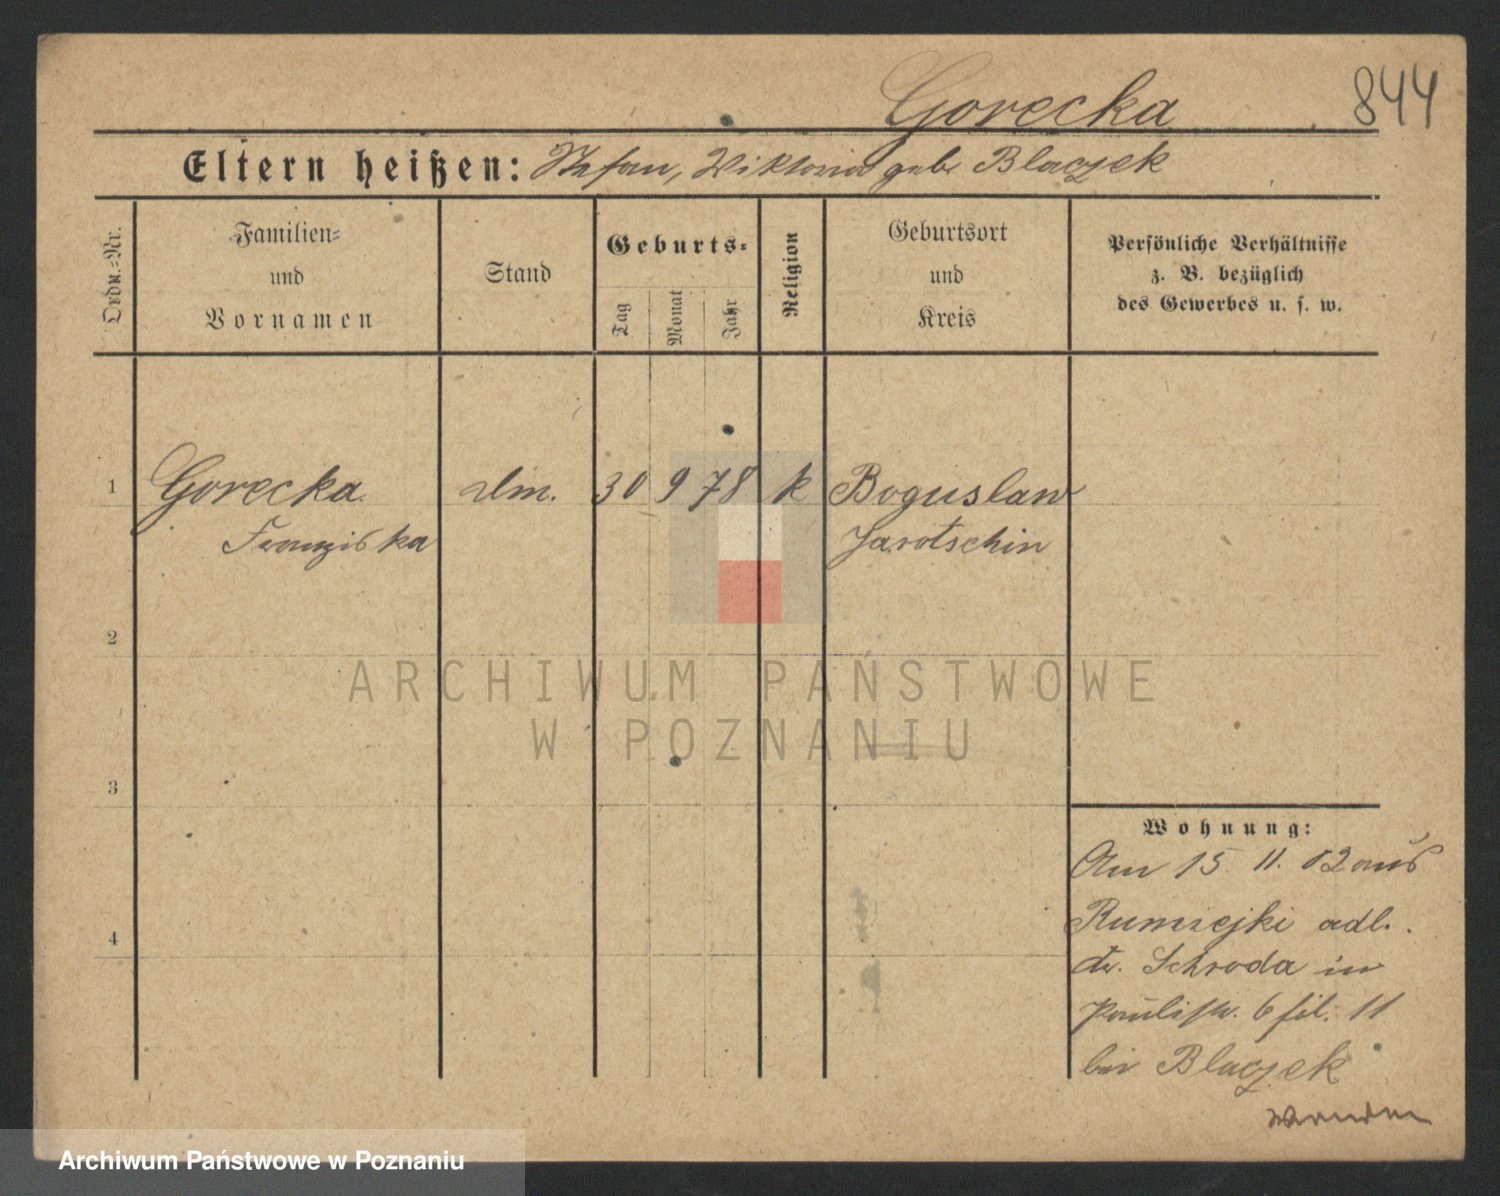 Gorecka 844
Eltern heißen: Stefan, Wiktoria geb. Blaczek
Ordn.=Nr.
Familien= und Vornamen
Stand
Geburts=
Tag Monat Jahr
Religion
Geburtsort und Kreis
Persönliche Verhältnisse
z. B. bezüglich
des Gewerbes u. s. w.
1 Gorecka 30 9 78 k Boguslaw
Franziska Jarotschin
2
3
4
Wohnung:
Am 15 11. 02 aus
Rumiejki adl.
Kr. Schroda in
Paulistr. 6 II
bei Blaczek
ARCHIWUM PAŃSTWOWE
W POZNANIU
Archiwum Państwowe w Poznaniu